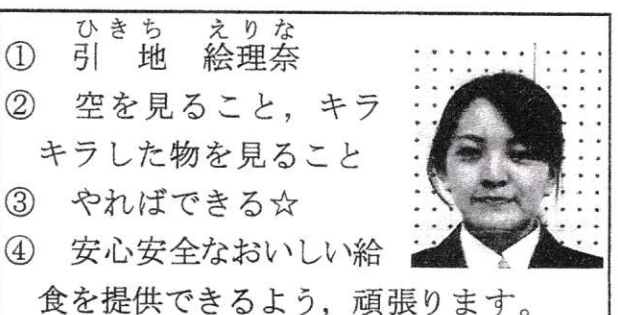 ひきち えりな
① 引 地 絵理奈
② 空を見ること，キラ
キラした物を見ること
③ やればできる☆
④ 安心安全なおいしい給
食を提供できるよう，頑張ります。